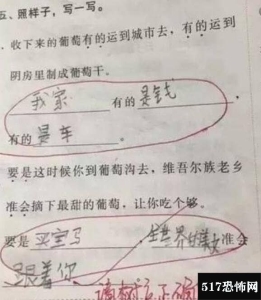 五、照样子,写一写。
收下来的葡萄有的运到城市去,有的运到
阴房里制成葡萄干。
我家 有的是钱
有的是车。
要是这时候你到葡萄沟去,维吾尔族老乡
准会摘下最甜的葡萄,让你吃个够。
要是买宝马,全世界的美女准会
跟着你
请树立正确
517恐怖网